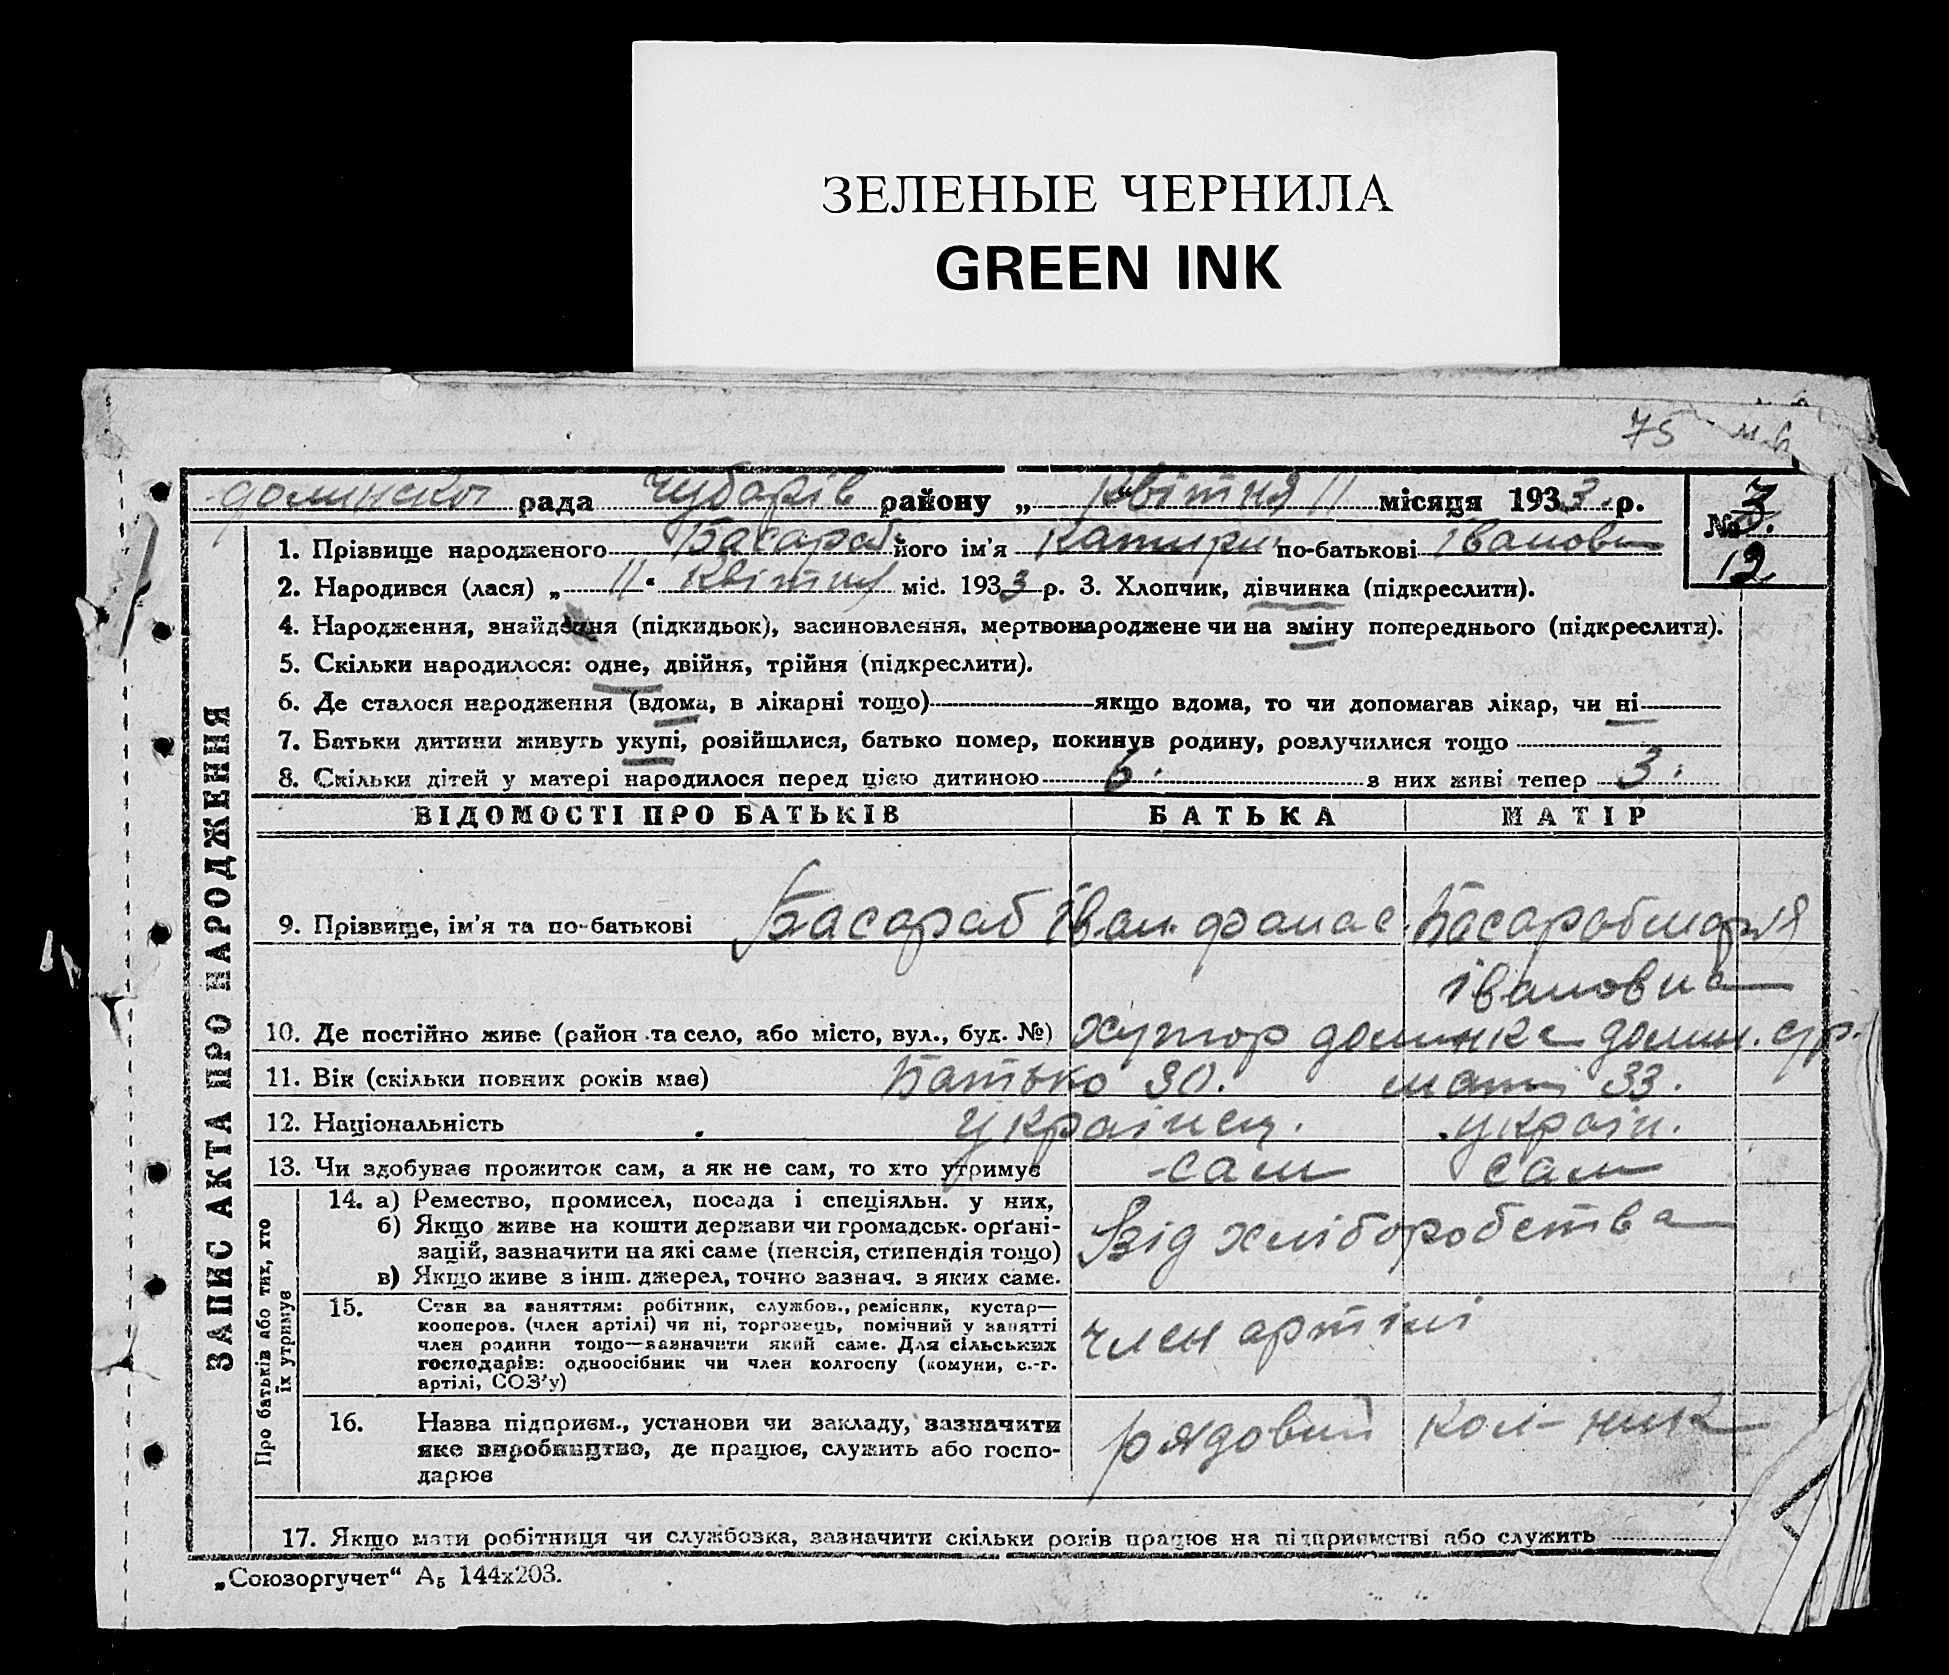 ЗЕЛЕНЫЕ ЧЕРНИЛА
GREEN INK
75
долинско рада Чубарів району „ квітня 11 місяця 1933 р.
№ 3.
12
1. Прізвище народженого Басараб його ім'я Катири по-батькові Івановн
2. Народився (лася) „ 11 " квітня міс. 1933 р. 3. Хлопчик, дівчинка (підкреслити).
4. Народження, знайдення (підкидьок), засиновлення, мертвонароджене чи на зміну попереднього (підкреслити).
5. Скільки народилося: одне, двійня, трійня (підкреслити).
6. Де сталося народження (вдома, в лікарні тощо) якщо вдома, то чи допомагав лікар, чи ні
7. Батьки дитини живуть укупі, розійшлися, батько помер, покинув родину, розлучилися тощо
8. Скільки дітей у матері народилося перед цією дитиною 6. з них живі тепер 3.
ЗАПИС АКТА ПРО НАРОДЖЕННЯ
ВІДОМОСТІ ПРО БАТЬКІВ БАТЬКА МАТІР
9. Прізвище, ім'я та по-батькові Басараб Іван. Фанас. Басараб Марія
Івановна
10. Де постійно живе (район та село, або місто, вул., буд. №) хутор долинка долин. с/р.
11. Вік (скільки повних років має) Батько 30. мати 33.
12. Національність українец. україн.
13. Чи здобуває прожиток сам, а як не сам, то хто утримує сам сам
Про батьків або тих, хто
їх утримує
14. а) Ремество, промисел, посада і спеціяльн. у них,
б) Якщо живе на кошти держави чи громадськ. орґані-
зацій, зазначити на які саме (пенсія, стипендія тощо)
в) Якщо живе з інш. джерел, точно зазнач. з яких саме.
Від хліборобства
15. Стан за заняттям: робітник, службов., ремісняк, кустар—
кооперов. (член артілі) чи ні, торговець, помічний у занятті
член родини тощо—зазначити який саме. Для сільських
господарів: одноосібник чи член колгоспу (комуни, с.-г.
артілі, СОЗ'у)
член артілі
16. Назва підприєм., установи чи закладу, зазначити
яке виробництво, де працює, служить або госпо-
дарює
рядовий кол-ник
17. Якщо мати робітниця чи службовка, зазначити скільки років працює на підприємстві або служить
„Союзоргучет“ А5 144х203.